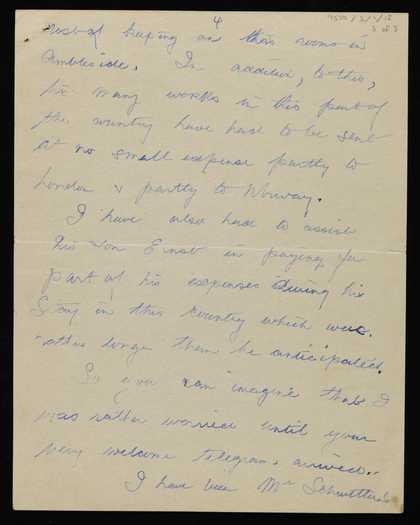 4
rest of keeping on their rooms in
Ambleside. In addition, to this,
his many works in this part of
the country have had to be sent
at no small expense partly to
London & partly to Norway.
I have also had to assist
his son Ernst in paying for
part of his expenses during his
stay in this country which was
rather longer than he anticipated.
So you can imagine that I
was rather worried until your
very welcome telegram arrived.
I have been Mr Schwitters
3 of 3